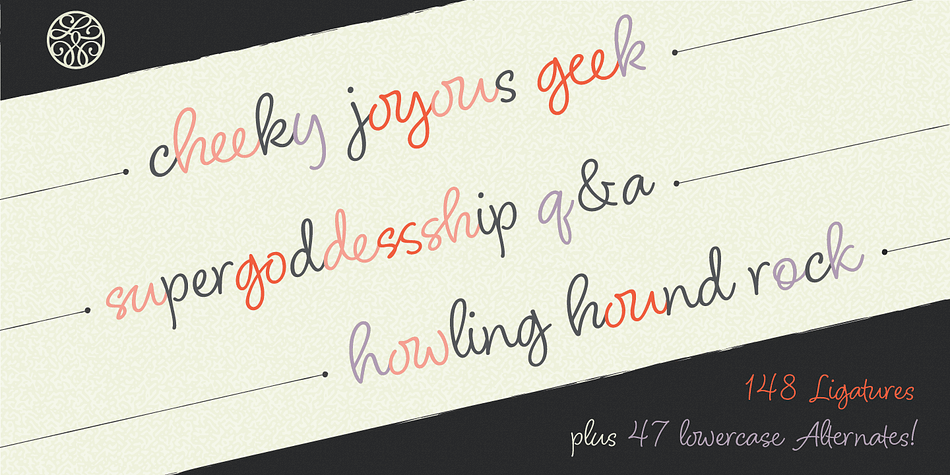 cheeky joyous geek
supergoddessship q&a
howling hound rock
148 Ligatures
plus 47 lowercase Alternates!